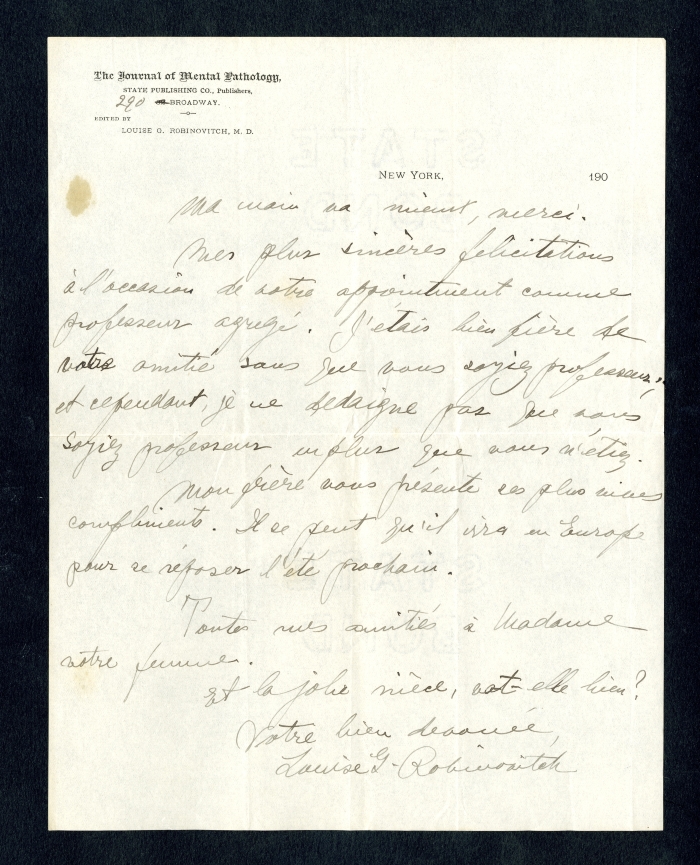 The Journal of Mental Pathology,
STATE PUBLISHING CO., Publishers,
290 BROADWAY.
EDITED BY
LOUISE G. ROBINOVITCH, M. D.
NEW YORK, 190
Ma main va mieux, merci.
Mes plus sincères félicitations
à l'occasion de votre appointment comme
professeur agrégé. J'étais bien fière de
votre amitié sans que vous soyiez professeur;
et cependant, je ne dedaigne pas que vous
soyiez professeur en plus que vous n'étiez.
Mon frère vous présente ses plus vives
compliments. Il se peut qu'il ira en Europe
pour se réposer l'été prochain.
Toutes mes amitiés à Madame
votre femme.
Et la jolie nièce, vat-elle bien?
Votre bien devouée,
Louise G. Robinovitch
STATE
BOND
STATE
BOND